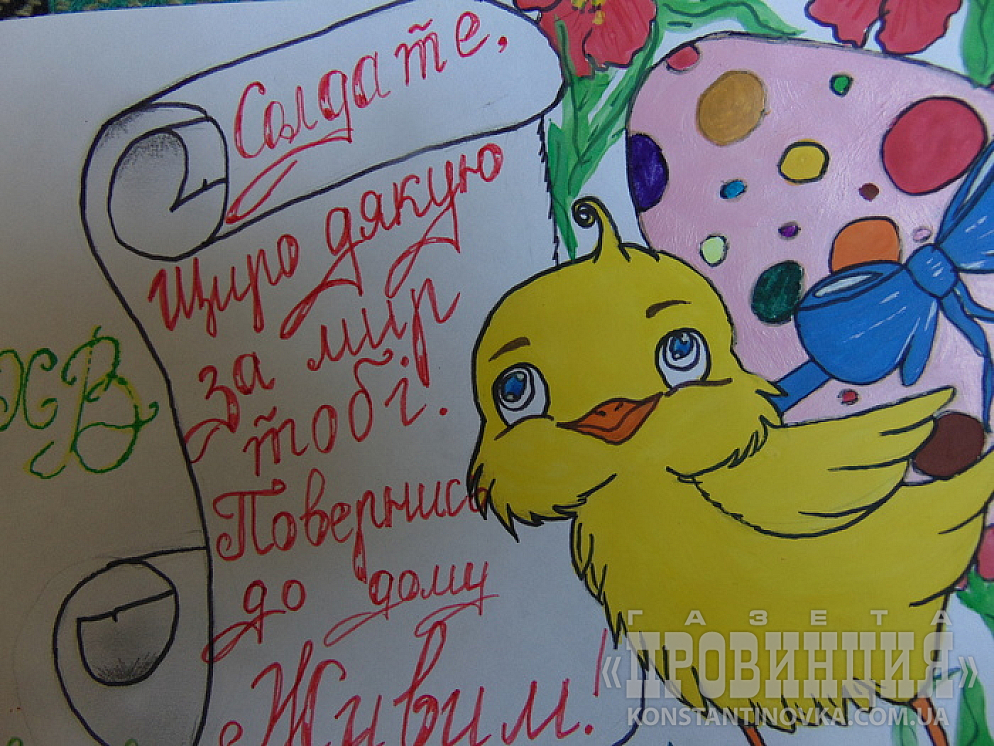 Солдате,
Щиро дякую
за мир
тобі.
Повернись
до дому
Живим!
ХВ
ГАЗЕТА
«ПРОВИНЦИЯ»
KONSTANTINOVKA.COM.UA